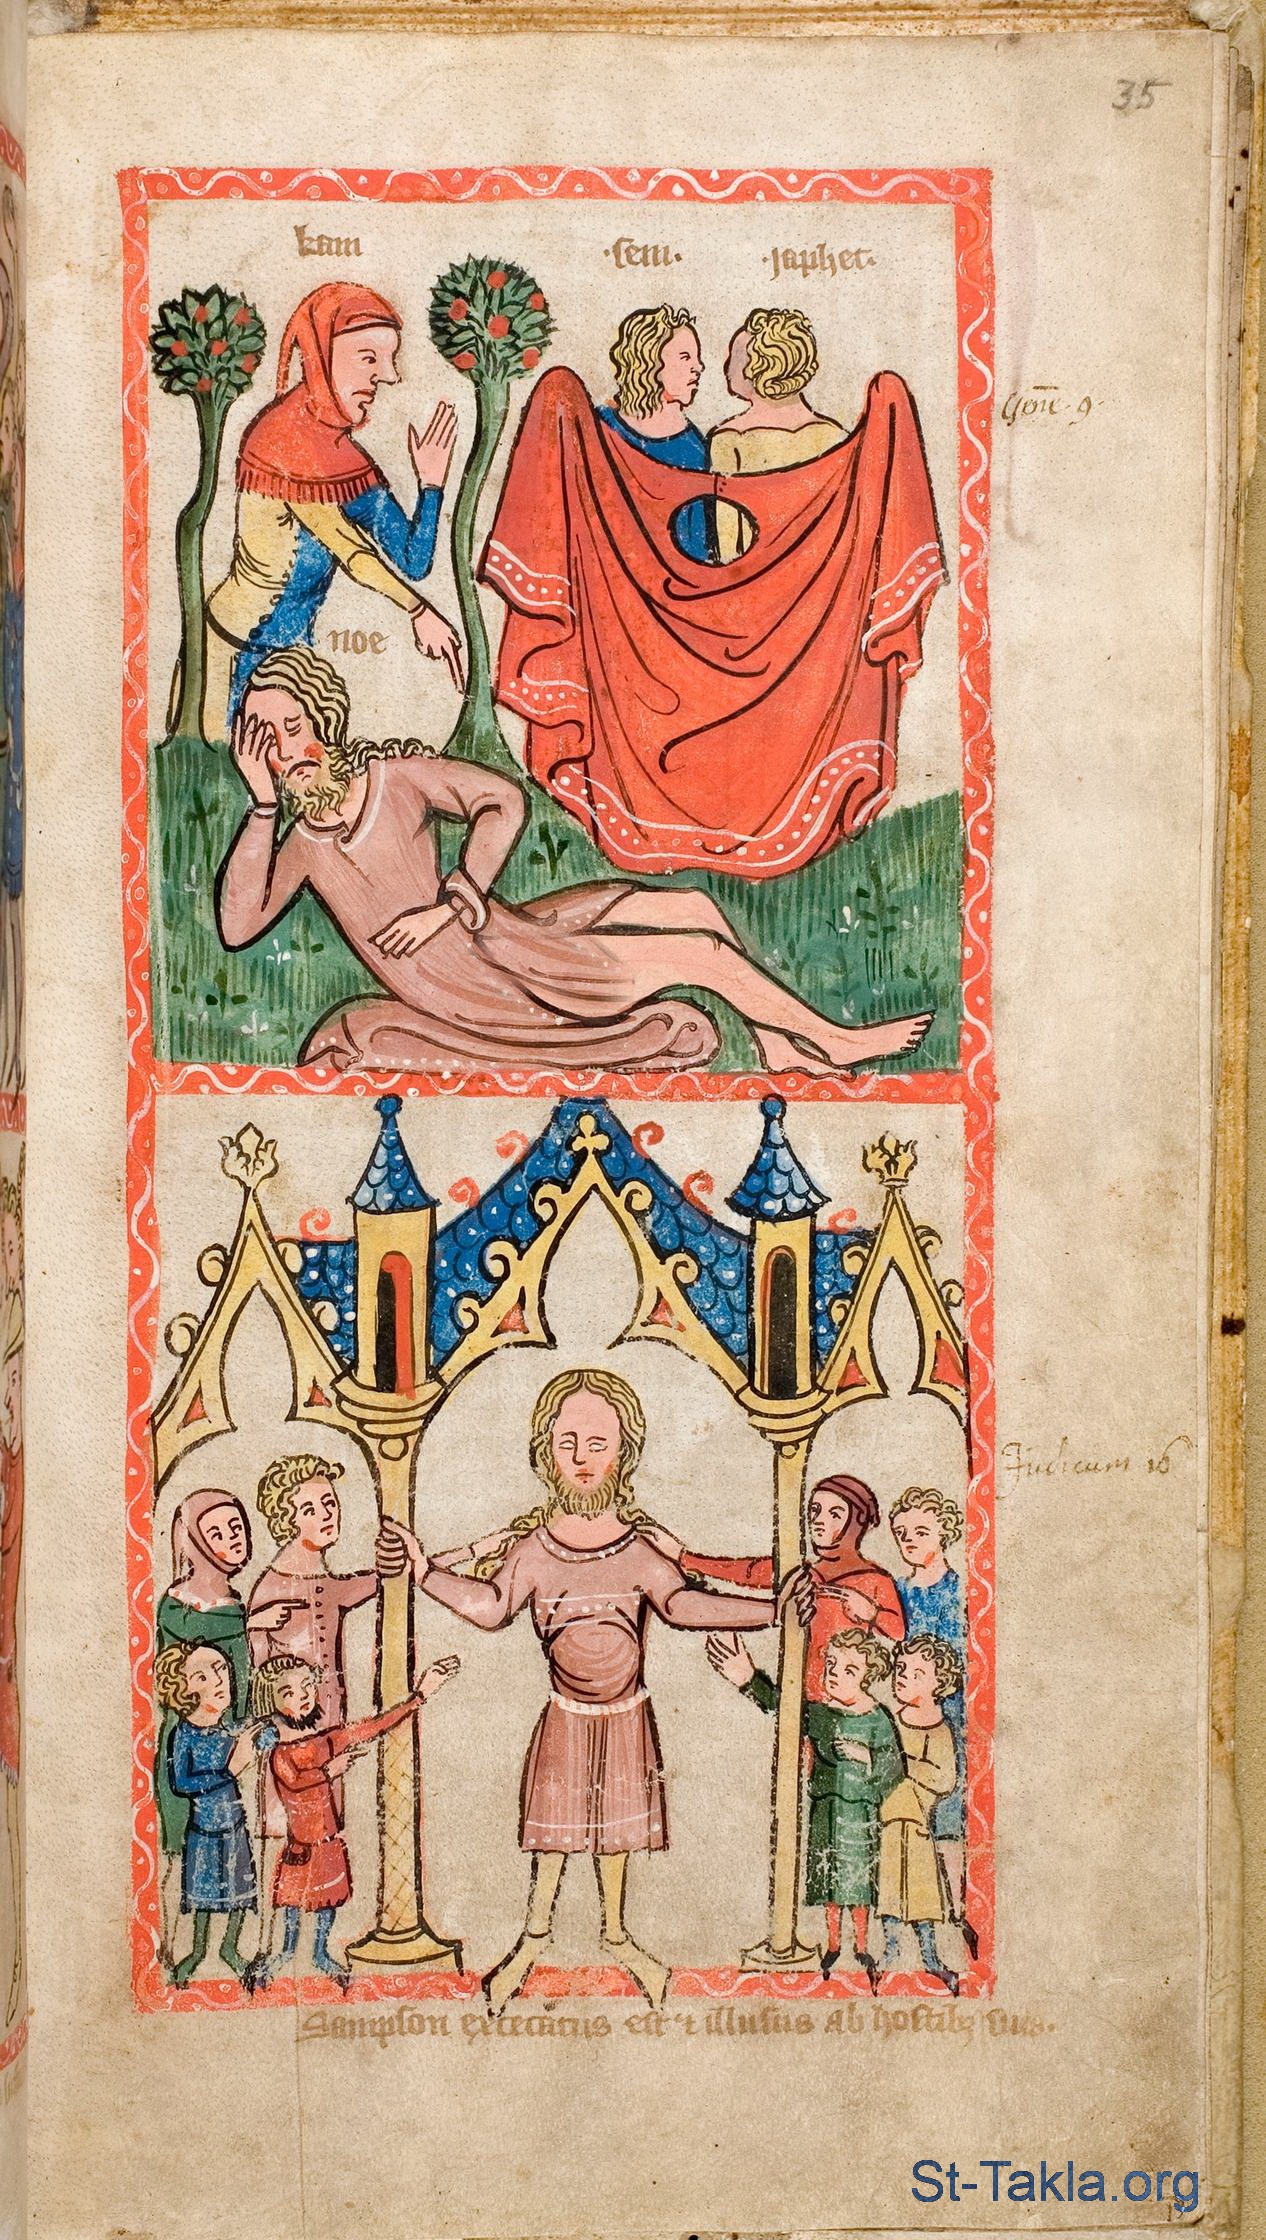 35
kam
·sem· ·japhet·
Gen̄· 9·
noe
Judicum 16
Sampson excecatus est ⁊ illusus ab hostibꝫ suis.
St-Takla.org